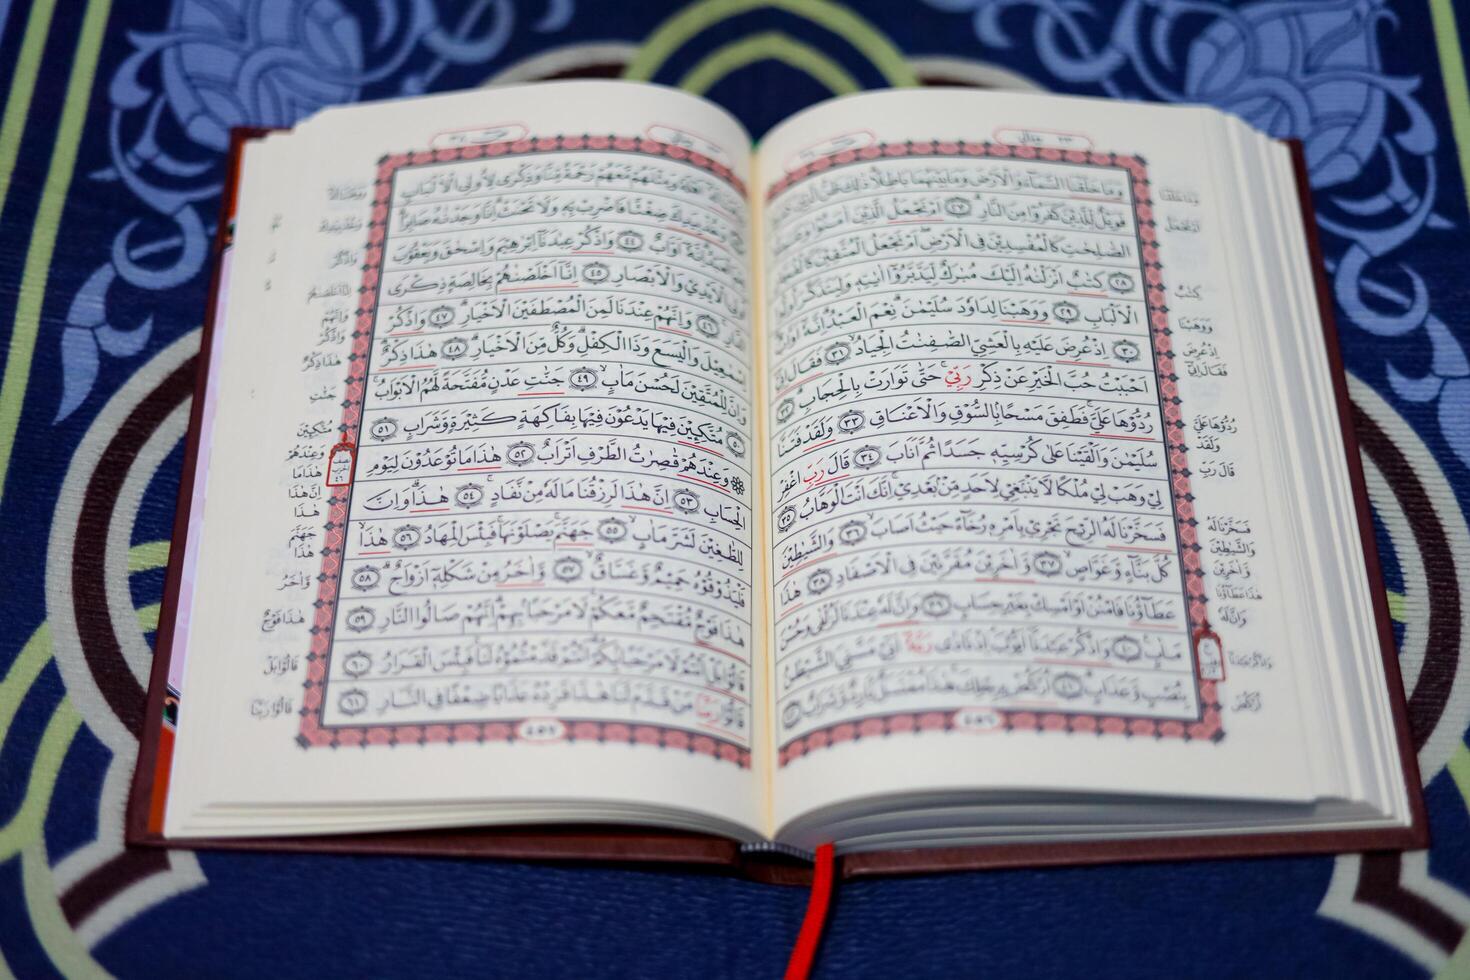 وَمَا خَلَقْنَا السَّمَاءَ وَالْاَرْضَ وَمَا بَيْنَهُمَا بَاطِلًا ذٰلِكَ ظَنُّ الَّذِينَ
فَوَيْلٌ لِلَّذِينَ كَفَرُوا مِنَ النَّارِ ٢٧ اَمْ نَجْعَلُ الَّذِينَ اٰمَنُوا وَعَمِلُوا
الصَّالِحَاتِ كَالْمُفْسِدِينَ فِي الْاَرْضِ اَمْ نَجْعَلُ الْمُتَّقِينَ كَالْفُجَّارِ
٢٨ كِتٰبٌ اَنْزَلْنٰهُ اِلَيْكَ مُبٰرَكٌ لِيَدَّبَّرُوا اٰيٰتِهِ وَلِيَتَذَكَّرَ اُولُوا
الْاَلْبَابِ ٢٩ وَوَهَبْنَا لِدَاوُدَ سُلَيْمٰنَ نِعْمَ الْعَبْدُ اِنَّهُ اَوَّابٌ
٣٠ اِذْ عُرِضَ عَلَيْهِ بِالْعَشِيِّ الصَّافِنٰتُ الْجِيَادُ ٣١ فَقَالَ اِنِّي
اَحْبَبْتُ حُبَّ الْخَيْرِ عَنْ ذِكْرِ رَبِّي حَتّٰى تَوَارَتْ بِالْحِجَابِ ٣٢
رُدُّوهَا عَلَيَّ فَطَفِقَ مَسْحًا بِالسُّوقِ وَالْاَعْنَاقِ ٣٣ وَلَقَدْ فَتَنَّا
سُلَيْمٰنَ وَاَلْقَيْنَا عَلٰى كُرْسِيِّهِ جَسَدًا ثُمَّ اَنَابَ ٣٤ قَالَ رَبِّ اغْفِرْ
لِي وَهَبْ لِي مُلْكًا لَا يَنْبَغِي لِاَحَدٍ مِنْ بَعْدِي اِنَّكَ اَنْتَ الْوَهَّابُ ٣٥
فَسَخَّرْنَا لَهُ الرِّيحَ تَجْرِي بِاَمْرِهِ رُخَاءً حَيْثُ اَصَابَ ٣٦ وَالشَّيٰطِينَ
كُلَّ بَنَّاءٍ وَغَوَّاصٍ ٣٧ وَاٰخَرِينَ مُقَرَّنِينَ فِي الْاَصْفَادِ ٣٨ هٰذَا
عَطَاؤُنَا فَامْنُنْ اَوْ اَمْسِكْ بِغَيْرِ حِسَابٍ ٣٩ وَاِنَّ لَهُ عِنْدَنَا لَزُلْفٰى وَحُسْنَ
مَاٰبٍ ٤٠ وَاذْكُرْ عَبْدَنَا اَيُّوبَ اِذْ نَادٰى رَبَّهُ اَنِّي مَسَّنِيَ الشَّيْطٰنُ
بِنُصْبٍ وَعَذَابٍ ٤١ اُرْكُضْ بِرِجْلِكَ هٰذَا مُغْتَسَلٌ بَارِدٌ وَشَرَابٌ ٤٢
وَمِثْلَهُمْ مَعَهُمْ رَحْمَةً مِنَّا وَذِكْرٰى لِاُولِي الْاَلْبَابِ
ضِغْثًا فَاضْرِبْ بِهِ وَلَا تَحْنَثْ اِنَّا وَجَدْنٰهُ صَابِرًا
نِعْمَ الْعَبْدُ اِنَّهُ اَوَّابٌ ٤٤ وَاذْكُرْ عِبَادَنَا اِبْرٰهِيمَ وَاِسْحٰقَ وَيَعْقُوبَ
اُولِي الْاَيْدِي وَالْاَبْصَارِ ٤٥ اِنَّا اَخْلَصْنٰهُمْ بِخَالِصَةٍ ذِكْرَى
الدَّارِ ٤٦ وَاِنَّهُمْ عِنْدَنَا لَمِنَ الْمُصْطَفَيْنَ الْاَخْيَارِ ٤٧ وَاذْكُرْ
اِسْمٰعِيلَ وَالْيَسَعَ وَذَا الْكِفْلِ وَكُلٌّ مِنَ الْاَخْيَارِ ٤٨ هٰذَا ذِكْرٌ
وَاِنَّ لِلْمُتَّقِينَ لَحُسْنَ مَاٰبٍ ٤٩ جَنّٰتِ عَدْنٍ مُفَتَّحَةً لَهُمُ الْاَبْوَابُ
٥٠ مُتَّكِئِينَ فِيهَا يَدْعُونَ فِيهَا بِفَاكِهَةٍ كَثِيرَةٍ وَشَرَابٍ ٥١
وَعِنْدَهُمْ قَاصِرَاتُ الطَّرْفِ اَتْرَابٌ ٥٢ هٰذَا مَا تُوعَدُونَ لِيَوْمِ
الْحِسَابِ ٥٣ اِنَّ هٰذَا لَرِزْقُنَا مَا لَهُ مِنْ نَفَادٍ ٥٤ هٰذَا وَاِنَّ
لِلطَّاغِينَ لَشَرَّ مَاٰبٍ ٥٥ جَهَنَّمَ يَصْلَوْنَهَا فَبِئْسَ الْمِهَادُ ٥٦ هٰذَا
فَلْيَذُوقُوهُ حَمِيمٌ وَغَسَّاقٌ ٥٧ وَاٰخَرُ مِنْ شَكْلِهِ اَزْوَاجٌ ٥٨
هٰذَا فَوْجٌ مُقْتَحِمٌ مَعَكُمْ لَا مَرْحَبًا بِهِمْ اِنَّهُمْ صَالُوا النَّارِ ٥٩
قَالُوا بَلْ اَنْتُمْ لَا مَرْحَبًا بِكُمْ اَنْتُمْ قَدَّمْتُمُوهُ لَنَا فَبِئْسَ الْقَرَارُ ٦٠
قَالُوا رَبَّنَا مَنْ قَدَّمَ لَنَا هٰذَا فَزِدْهُ عَذَابًا ضِعْفًا فِي النَّارِ ٦١